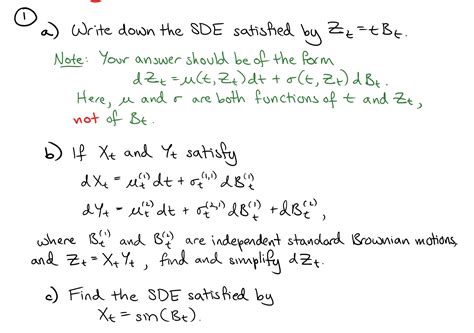 ① a) Write down the SDE satisfied by Z_t = tB_t.
Note: Your answer should be of the form
dZ_t = μ(t, Z_t) dt + σ(t, Z_t) dB_t.
Here, μ and σ are both functions of t and Z_t,
not of B_t.
b) If X_t and Y_t satisfy
dX_t = μ_t^(1) dt + σ_t^(1,1) dB_t^(1)
dY_t = μ_t^(2) dt + σ_t^(2,1) dB_t^(1) + dB_t^(2),
where B_t^(1) and B_t^(2) are independent standard Brownian motions,
and Z_t = X_t Y_t, find and simplify dZ_t.
c) Find the SDE satisfied by
X_t = sin(B_t).